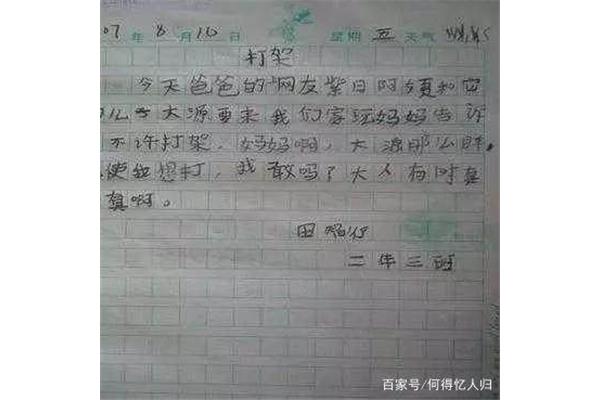 07 年 8 月 10 日 星期 五 天气
打架
今天爸爸的网友紫日阿姨和它
儿子大源要来我们家玩妈妈告诉
不许打架，妈妈啊，大源那么胖，
使我想打，我敢吗？大人有时真
真啊。
田
二年三班
百家号/何得忆人归